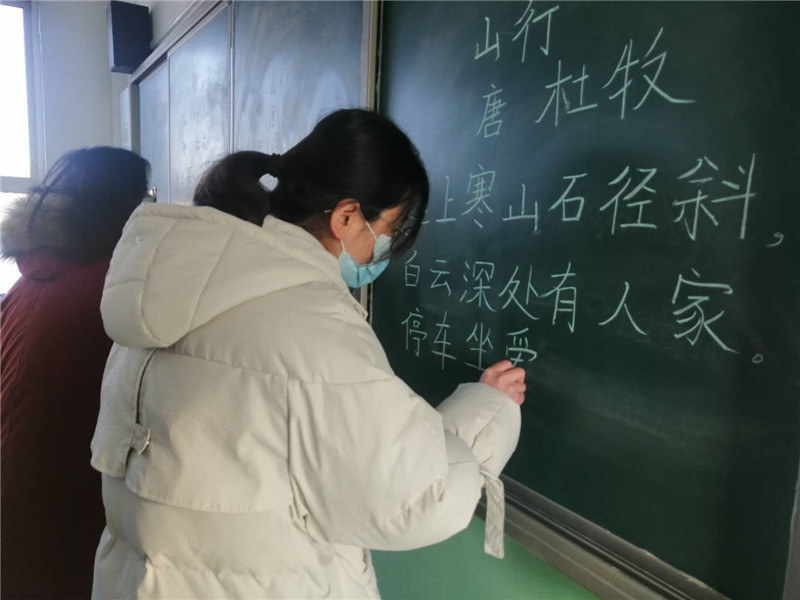 山行
唐 杜牧
上寒山石径斜,
白云深处有人家。
停车坐